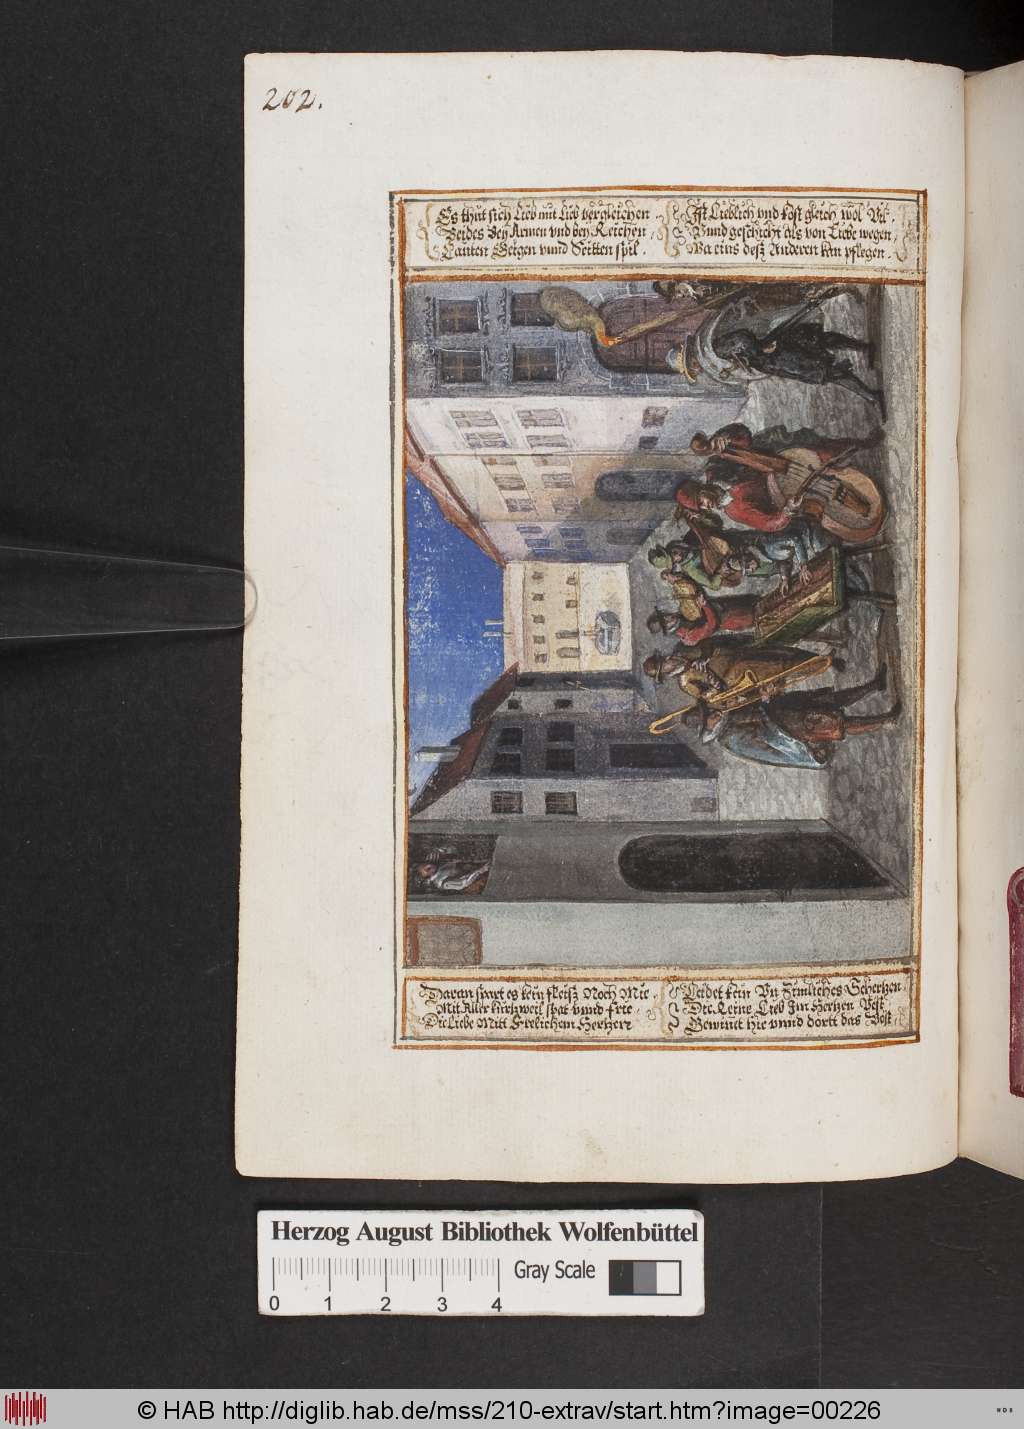 202.
Es thut sich Lieb mit Lieb vergleichen.
Beides Bey Armen vnd bey Reichen,
Lauten Geigen vnnd Seitten spil.
Ist Lieblich vnd kost gleich wol Vil,
Vnnd geschicht als von Liebe wegen,
Wa eins desz Anderen kan pflegen.
Daran spart es kein fleisz Noch Mie.
Mit Aller kurtzweil spat vnnd frie.
Die Liebe Mitt Frelichem Hertzen
Leidet kein Vn Zimliches Schertzen
Die Keine Lieb Im Hertzen Vest
Gewint hie vnnd dortt das Best
Herzog August Bibliothek Wolfenbüttel
0 1 2 3 4
Gray Scale
© HAB http://diglib.hab.de/mss/210-extrav/start.htm?image=00226